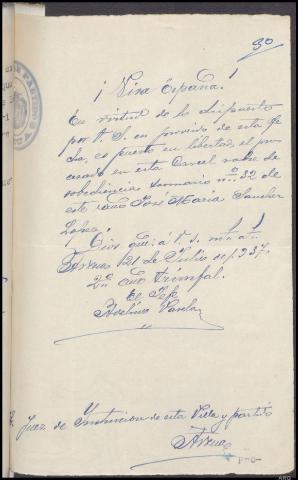 30
¡Viva España!
En virtud de lo dispuesto
por V. S. en proveido de esta fe-
cha, es puesto en libertad, el pro-
cesado en esta Carcel sobre de-
sobediencia sumario nº 32 de
este año José María Sanchez
López.
Dios gue á V. S. m. a.
Arenas 21 de Julio de 1.937.
2º año triunfal.
El Jefe
Avelino Varela
Juez de Instruccion de esta Villa y partido
Arenas